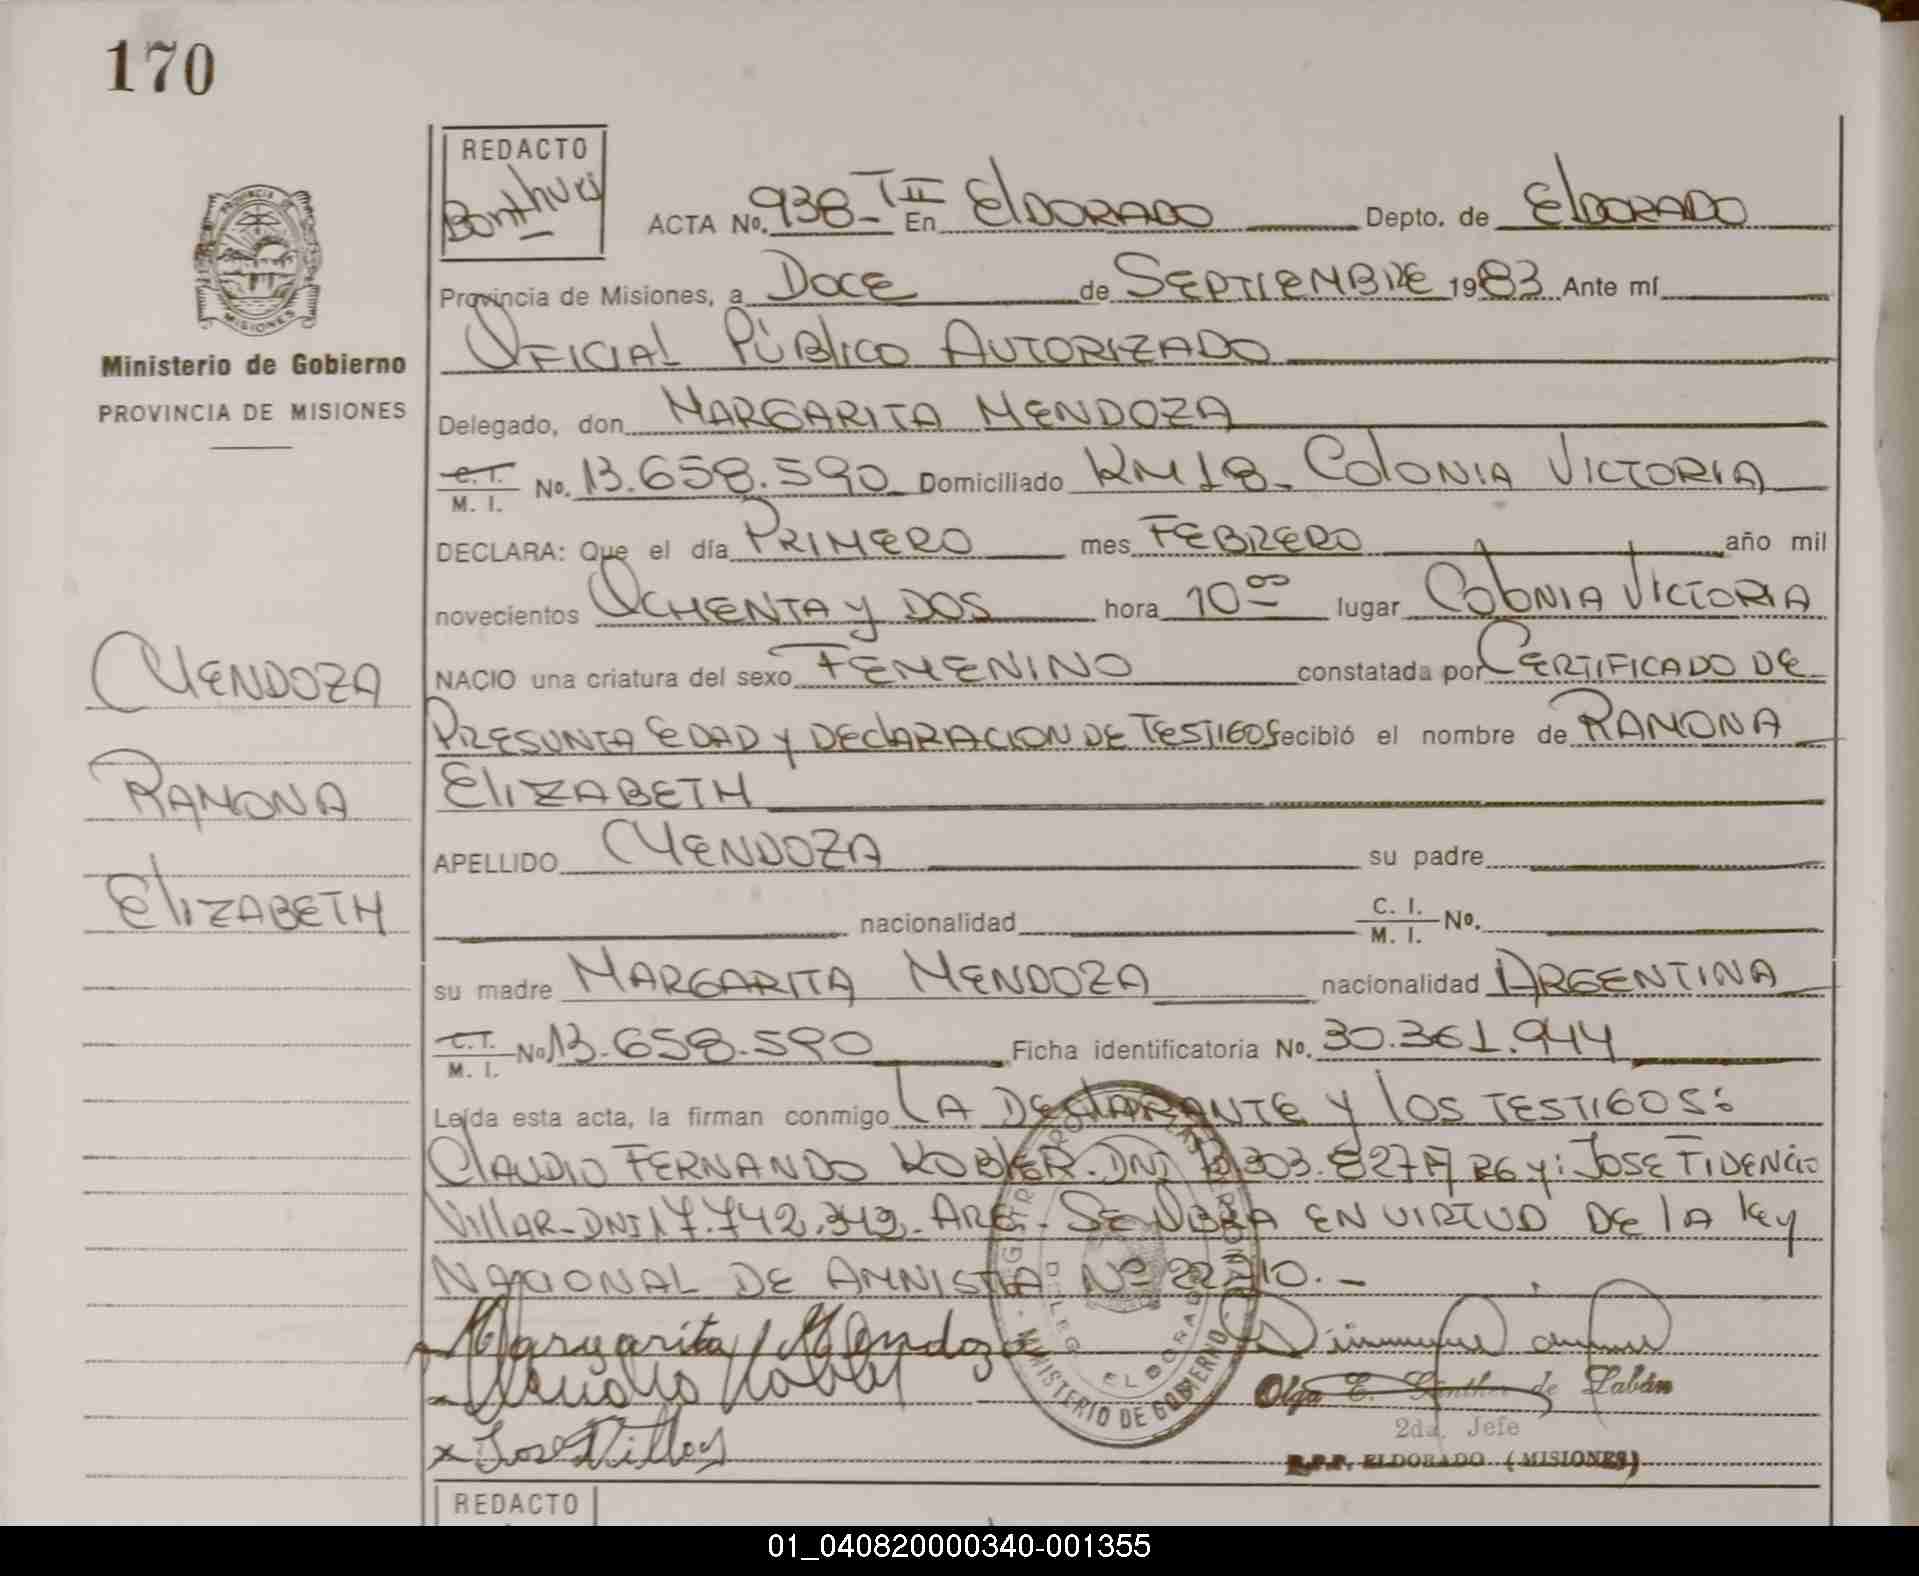 170
REDACTO
PROVINCIA DE
MISIONES
Ministerio de Gobierno
PROVINCIA DE MISIONES
ACTA No. 938-TII En ElDORADO Depto. de ElDORADO
Provincia de Misiones, a DOCE de SEPTIEMBRE 1983 Ante mí
OFICIAL PÚBlICO AUTORIZADO
Delegado, don MARGARITA MENDOZA
C.I. / M. I. No. 13.658.590 Domiciliado KM18- COlONIA VICTORIA
DECLARA: Que el día PRIMERO mes FEBRERO año mil
novecientos OCHENTA y DOS hora 10°° lugar COlONIA VICTORIA
NACIO una criatura del sexo FEMENINO constatada por CERTIFICADO DE
PRESUNTA EDAD y DEClARACION DE TESTIGOS recibió el nombre de RAMONA
ElIZABETH
APELLIDO MENDOZA su padre
nacionalidad C. I. / M. I. No.
su madre MARGARITA MENDOZA nacionalidad ARGENTINA
C.I. / M. I. No 13.658.590 Ficha identificatoria No. 30.361.944
Leída esta acta, la firman conmigo lA DEClARANTE y lOS TESTIGOS:
ClAUDIO FERNANDO KOBLER.DNI ARG y: JOSE FIDENCIO
VIllAR-DNI 17.742.343- ARG.- SE LIBRA EN VIRTUD DE lA lEy
NACIONAL DE AMNISTIA Nº 22.410.-
MENDOZA
RAMONA
ElIZABETH
Margarita Mendoza
Claudio Kobler
x José Villar
MINISTERIO DE GOBIERNO
DELEG. ELDORADO
Olga E. Günther de Zabán
2da. Jefe
R.P.P. ELDORADO (MISIONES)
REDACTO
01_040820000340-001355